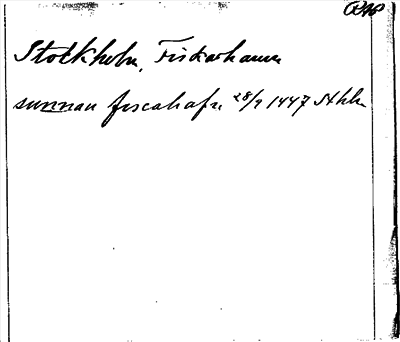 Stockholm, Fiskarhamn
sunnan fiscahafn 28/9 1447 Sthlm